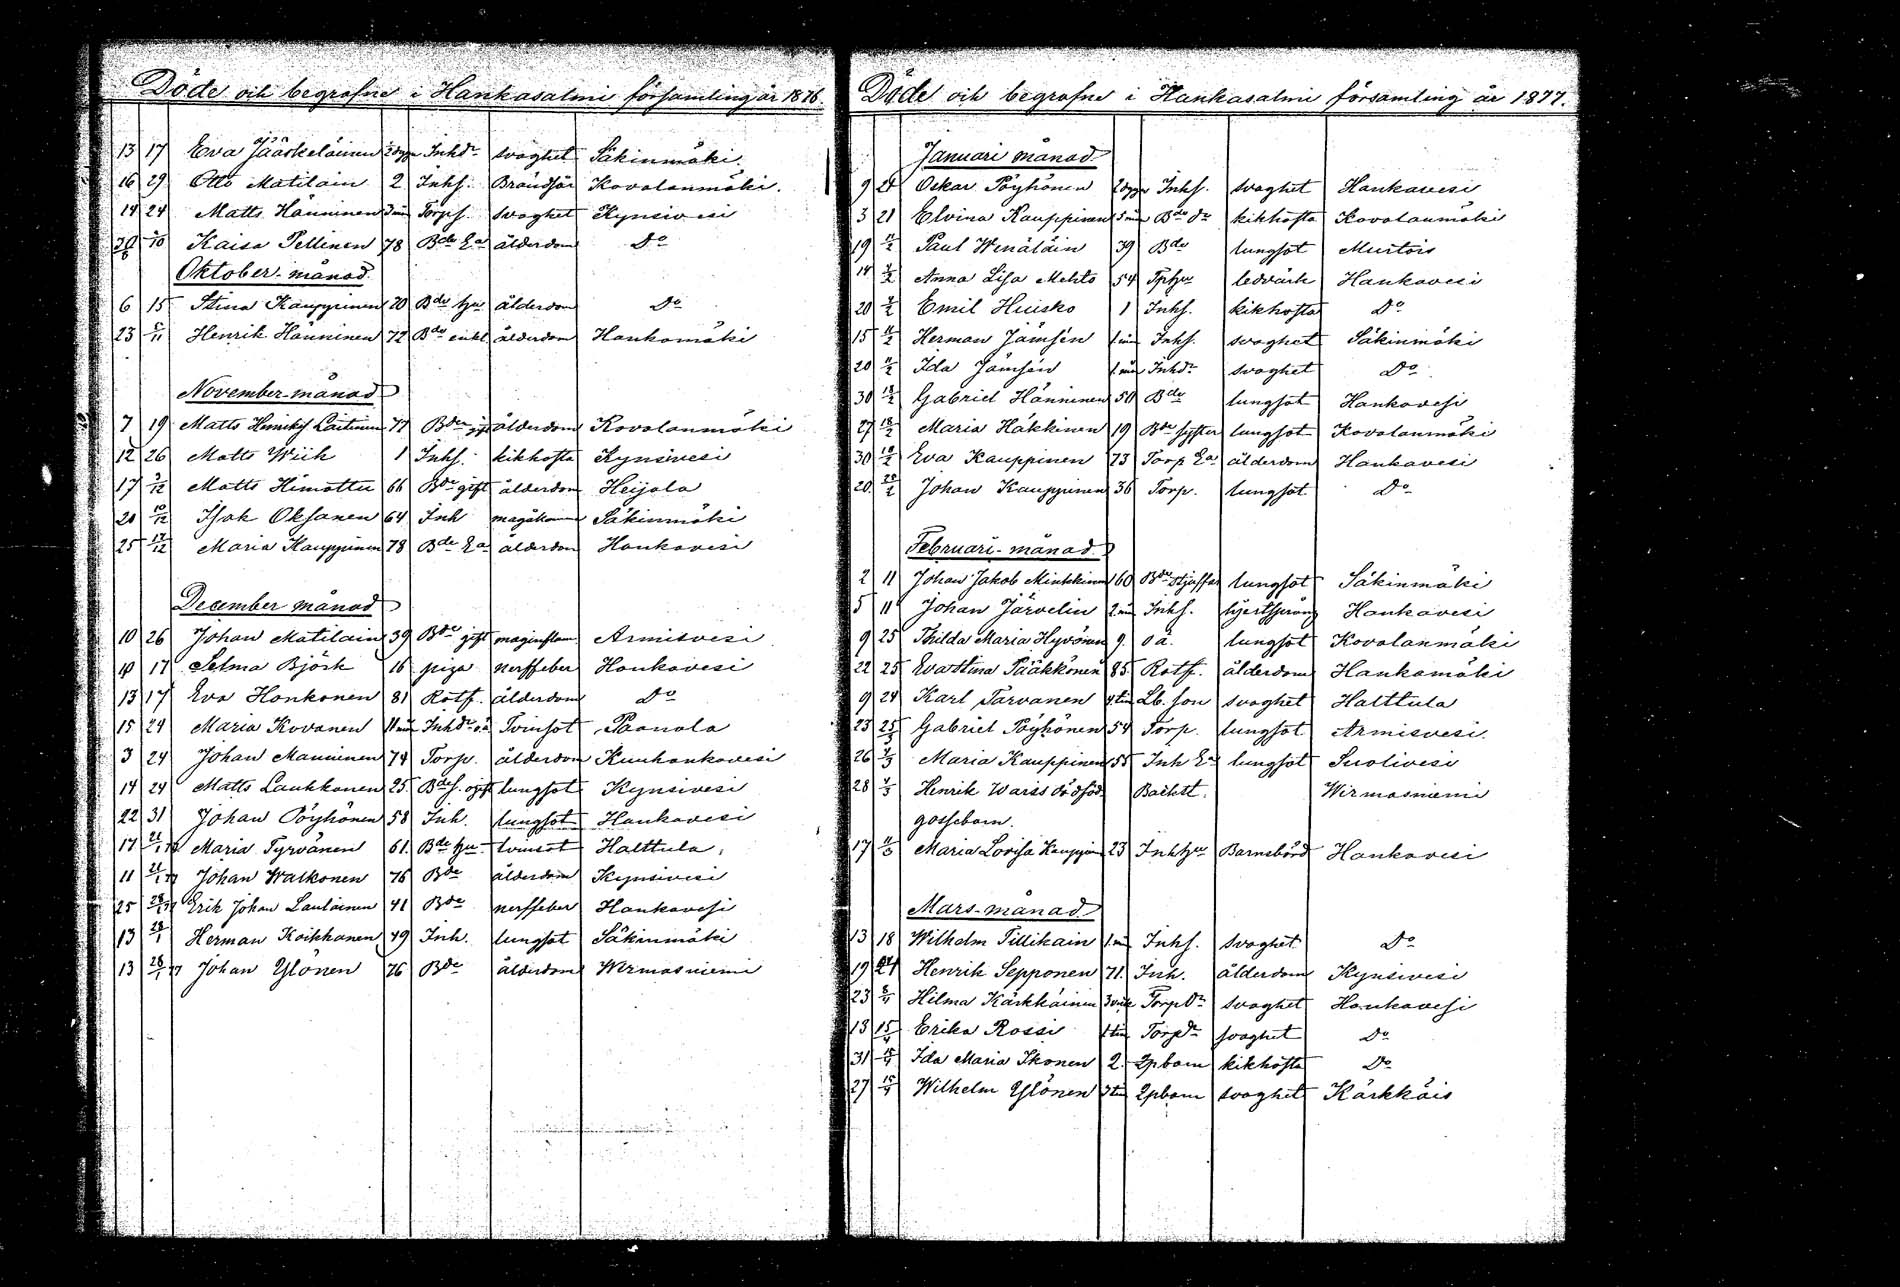 Döde och begrafne i Hankasalmi församling år 1876
13 17 Eva Jääskeläinen 2 dygn Inhdr svaghet Säkinmäki
16 29 Otto Matilain 2 Inhs. Kovalanmäki.
14 24 Matts Hänninen Torps. svaghet Kynsivesi
5/10 Kaisa Pellinen 78 Bde Ea ålderdom Do
Oktober-månad
6 15 Stina Kauppinen 70 Bde hu ålderdom Do
23 5/11 Henrik Hänninen 72 Bde enkl ålderdom Hankamäki
November-månad
7 19 Matts Laitinen 77 Bde ålderdom Kovalanmäki
12 26 Matts Wiik 1 Inhs. kikhosta Kynsivesi
17 3/12 Matts Himottu 66 Bde gift ålderdom Heijala
20 10/12 Isak Oksanen 64 Inh Säkinmäki
25 17/12 Maria Kauppinen 78 Bde Ea ålderdom Hankavesi
December månad
10 26 Johan Matilain 39 Bde gift maginflam. Armisvesi
10 17 Selma Björk 16 piga nerffeber Hankavesi
13 17 Eva Honkonen 81 Rotf. ålderdom Do
15 24 Maria Kovanen 11 mån Inhdr o.ä Tvinsot Paanala
3 24 Johan Manninen 74 Torp. ålderdom Kuuhankavesi
14 24 Matts Laukkanen 25. Bdes. ogift lungsot Kynsivesi
22 31 Johan Pöyhönen 58 Inh. lungsot Hankavesi
17 21/1 77 Maria Tyrvänen 61. Bde hu tvinsot Halttula
11 21/1 77 Johan Walkonen 76 Bde ålderdom Kynsivesi
25 28/1 77 Erik Johan Laulainen 41 Bde nerffeber Hankavesi
13 28/1 Herman Koikkanen 49 Inh. lungsot Säkinmäki
13 28/1 77 Johan Ylönen 76 Bde ålderdom Wirmasniemi
Döde och begrafne i Hankasalmi församling år 1877.
Januari månad
9 21 Oskar Pöyhönen 2 dygn Inhs. svaghet Hankavesi
3 21 Elvina Kauppinen 5 mån Bde dr kikhosta Kovalanmäki
19 11/2 Paul Wenäläin 39 Bde lungsot Murtois
14 Anna Lisa Mehto 54 Tphu ledvärk Hankavesi
20 Emil Huisko 1 Inhs. kikhosta Do
15 11/2 Herman Jämsén 1 mån Inhs. svaghet Säkinmäki
20 11/2 Ida Jämsén 1 mån Inhdr svaghet Do
30 18/2 Gabriel Hänninen 50 Bde lungsot Hankavesi
27 18/2 Maria Häkkinen 19 Bde syster lungsot Kovalanmäki
30 18/2 Eva Kauppinen 73 Torp Ea ålderdom Hankavesi
20. 25/2 Johan Kauppinen 36 Torp. lungsot Do
Februari-månad
2 11 Johan Jakob Minkkinen 60 Bde lungsot Säkinmäki
5 11 Johan Järvelin 2 mån Inhs. hjertsprång Hankavesi
9 25 Thilda Maria Hyvönen 9. o ä. lungsot Kovalanmäki
22 25 Eva Stina Pääkkönen 85. Rotf. ålderdom Hankamäki
9 24 Karl Tarvanen 4 tim Lb. son svaghet Halttula
23 25/3 Gabriel Pöyhönen 54 Torp. lungsot Armisvesi.
26 4/3 Maria Kauppinen 55 Inh Ea lungsot Suolivesi
28 4/3 Henrik Wariss dödföd Backst. Wirmasniemi
gossebarn.
17 11/3 Maria Lovisa Kauppin 23 Inh hu Barnsbörd Hankavesi
Mars-månad
13 18 Wilhelm Tillikain 1 mån Inhs. svaghet Do
19 24 Henrik Sepponen 71. Inh. ålderdom Kynsivesi
23 8/4 Hilma Kärkkäinen 3 vik Torp dr svaghet Hankavesi
13 15/4 Erika Rossi 1 tim Torp dr svaghet Do
31 15/4 Ida Maria Ikonen 2. Lpbarn kikhosta Do
27 15/4 Wilhelm Ylönen 7 tim Lpbarn svaghet Kärkkäis